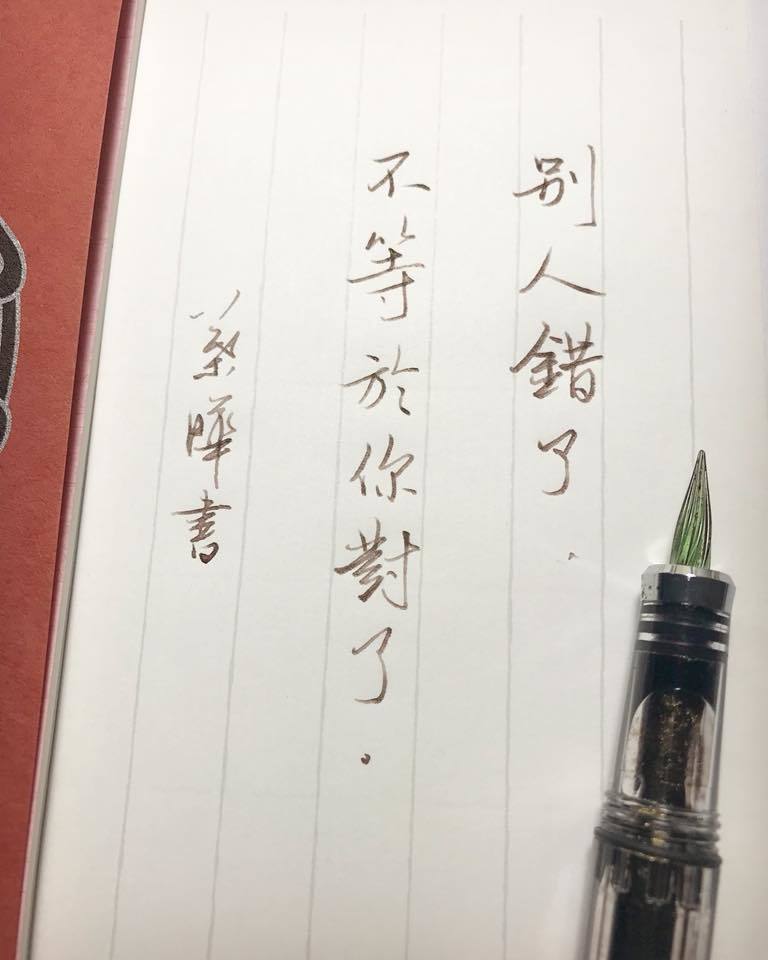 別人錯了.
不等於你對了.
葉曄書